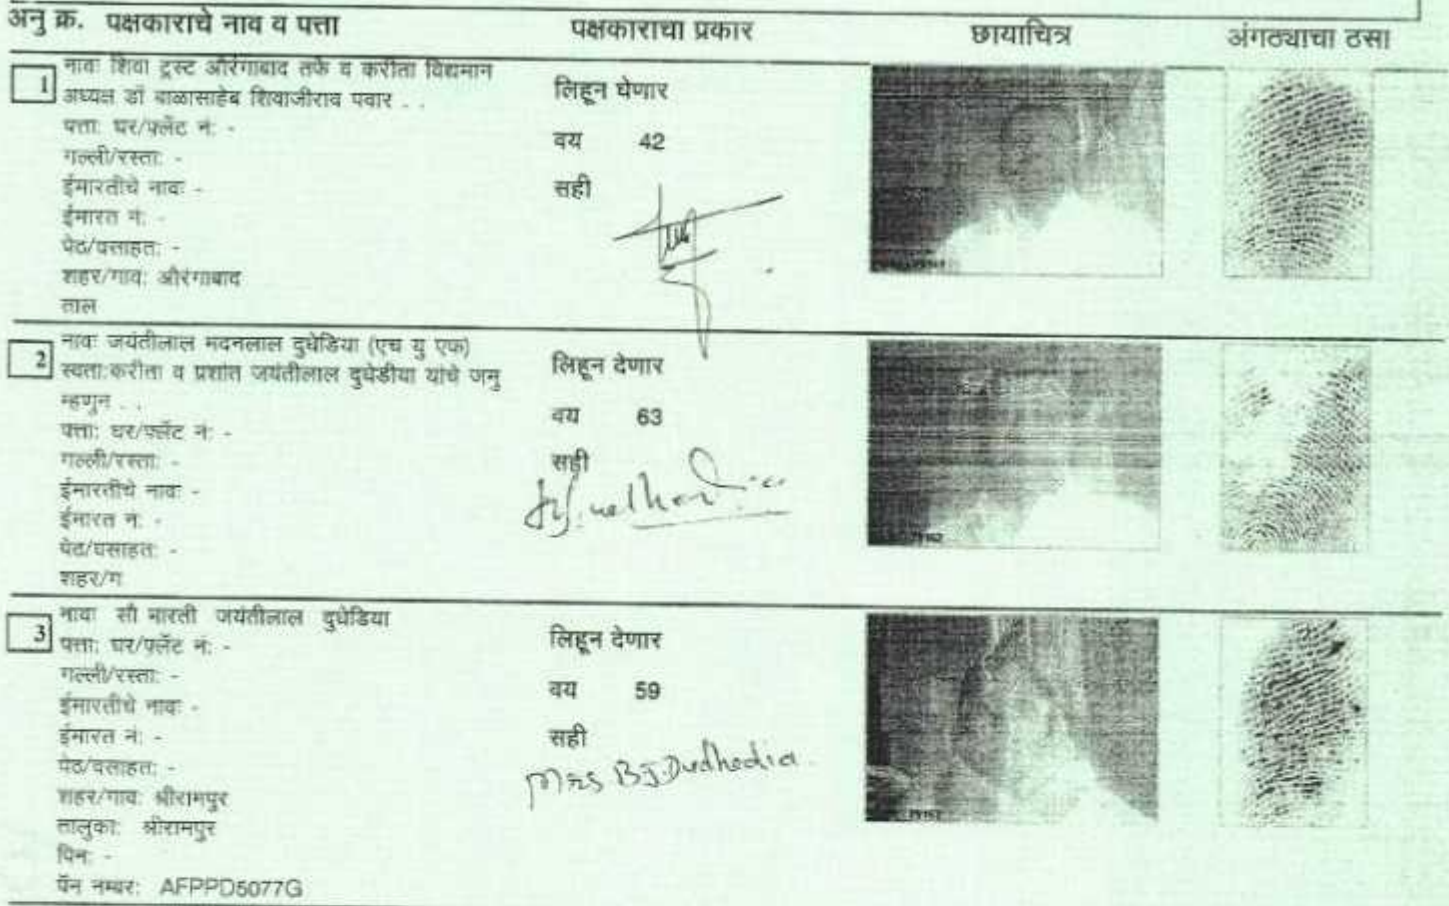 अनु क्र. पक्षकाराचे नाव व पत्ता पक्षकाराचा प्रकार छायाचित्र अंगठ्याचा ठसा
1
नावः शिवा ट्रस्ट औरंगाबाद तर्फे व करीता विद्यमान
अध्यक्ष डॉ बाळासाहेब शिवाजीराव पवार . .
पत्ता: घर/फ्लॅट नं: -
गल्ली/रस्ता: -
ईमारतीचे नावः -
ईमारत नं: -
पेठ/वसाहत: -
शहर/गाव: औरंगाबाद
ताल
लिहून घेणार
वय 42
सही
2
नावः जयंतीलाल मदनलाल दुधेडिया (एच यु एफ)
स्वता:करीता व प्रशांत जयंतीलाल दुधेडीया यांचे जमु
म्हणुन . .
पत्ता: घर/फ्लॅट नं: -
गल्ली/रस्ता: -
ईमारतीचे नावः -
ईमारत नं: -
पेठ/वसाहत: -
शहर/ग
लिहून देणार
वय 63
सही
3
नावः सौ भारती जयंतीलाल दुधेडिया
पत्ता: घर/फ्लॅट नं: -
गल्ली/रस्ता: -
ईमारतीचे नावः -
ईमारत नं: -
पेठ/वसाहत: -
शहर/गाव: श्रीरामपुर
तालुका: श्रीरामपुर
पिन: -
पॅन नम्बर: AFPPD5077G
लिहून देणार
वय 59
सही
Mrs B J Dudhedia